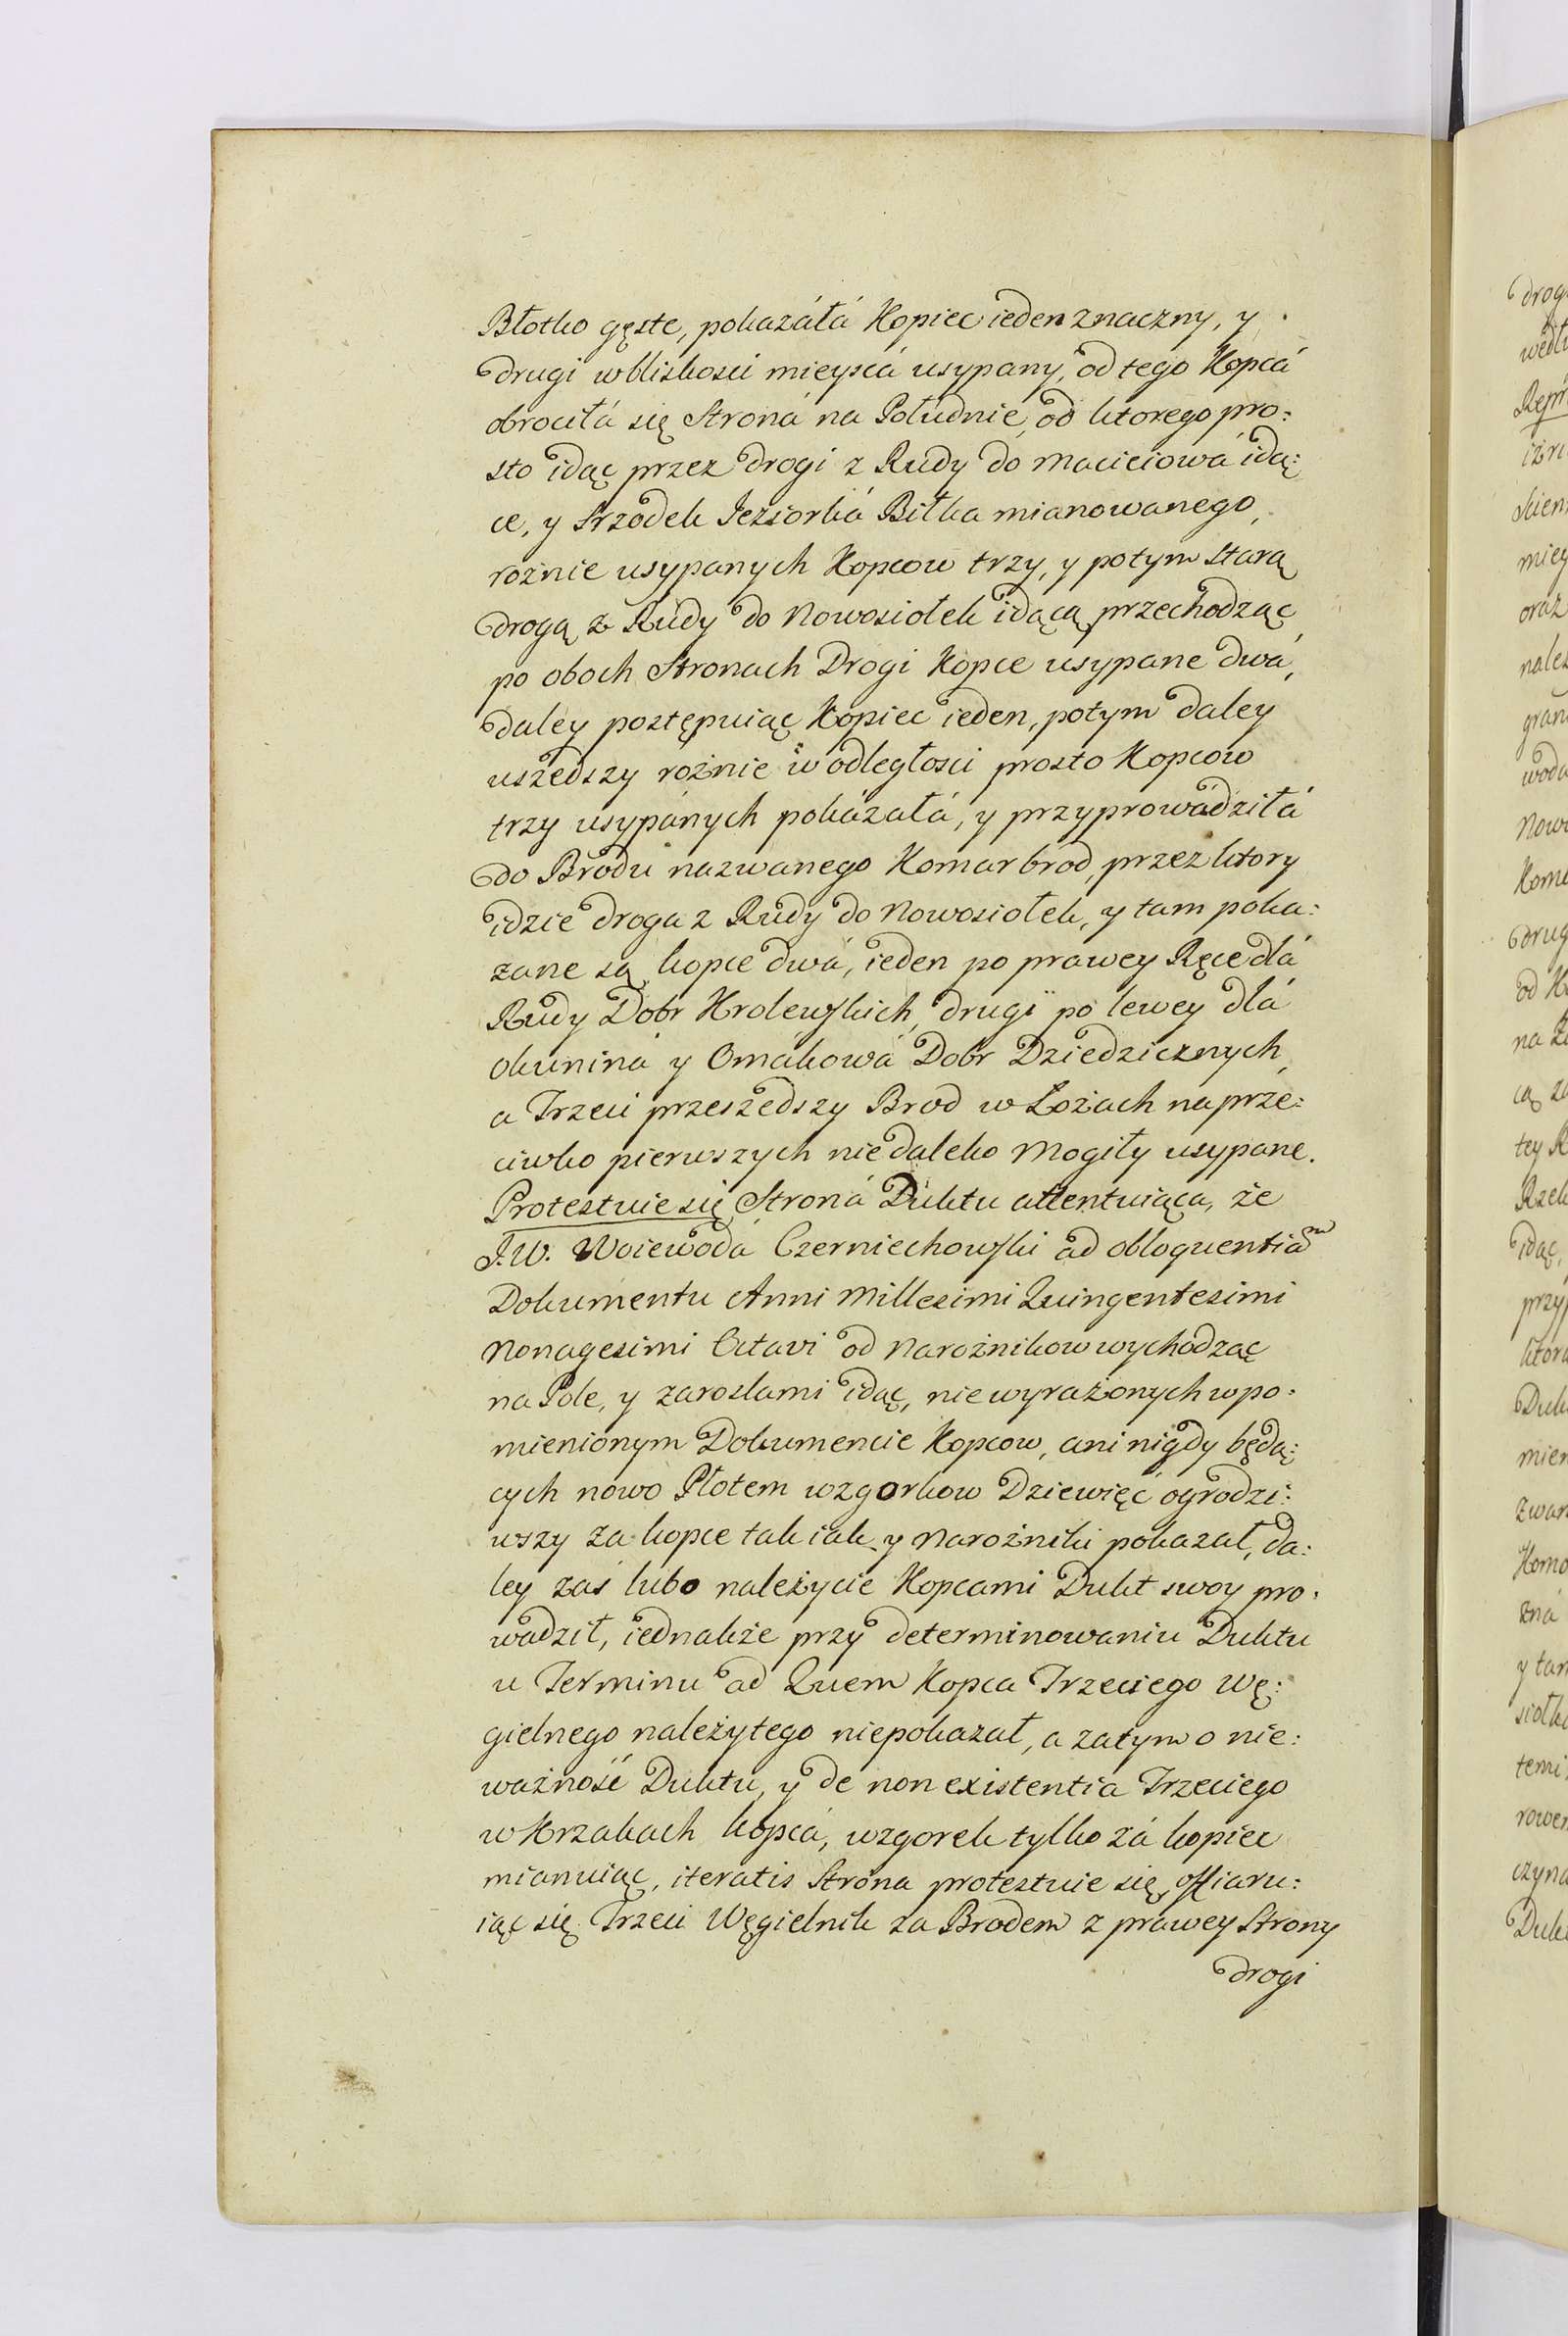 Błotko gęste, pokazáłá Kopiec ieden znaczny, y
drugi w bliskosci mieyscá usypany, od tego Kopcá
obrociłá się Stroná na Południe, od ktorego pro:
sto idąc przez drogi z Rudy do Maciciowá idą:
ce, y Srzodek Jeziorká Biłka mianowanego,
rożnie usypanych Kopcow trzy, y potym Starą
drogą z Rudy do Nowosiołek idącą przechodząc
po oboch Stronach Drogi Kopce usypane dwá,
daley postępuiąc Kopiec ieden, potym daley
uszedszy rożnie w odległosci prosto Kopcow
trzy usypánych pokázałá, y przyprowádziłá
do Brodu nazwanego Komar brod, przez ktory
idzie droga z Rudy do Nowosiołek, y tam poka:
zane są kopce dwá, ieden po prawey Ręce dlá
Rudy Dobr Krolewskich, drugi po lewey dlá
okuniná y Omákowá Dobr Dziedzicznych,
a Trzeci przeszedszy Brod w Łozach na prze:
ciwko pierwszych nie daleko Mogiły usypane.
Protestuie się Stroná Duktu attentuiąca, że
J.W. Woiewodá Czerniechowski ad obloquentiam
Dokumentu Anni Millesimi Quingentesimi
Nonagesimi Octavi od Narożnikow wychodząc
na Pole, y zaroslami idąc, nie wyrażonych w po:
mienionym Dokumencie Kopcow, ani nigdy będą:
cych nowo Płotem wzgorkow Dziewięć ogrodzi:
wszy za kopce tak iak y Narożniki pokazał, da:
ley zaś lubo należycie Kopcami Dukt swoy pro:
wadził, iednakże przy determinowaniu Duktu
u Terminu ad Quem Kopca Trzeciego Wę:
gielnego należytego niepokazał, a zatym o nie:
ważność Duktu, y de non existentia Trzeciego
w Krzakach kopcá, wzgorek tylko zá kopiec
mianuiąc, iteratis Strona protestuie się, offiaru:
iąc się Trzeci Węgielnik za Brodem z prawey Strony
drogi